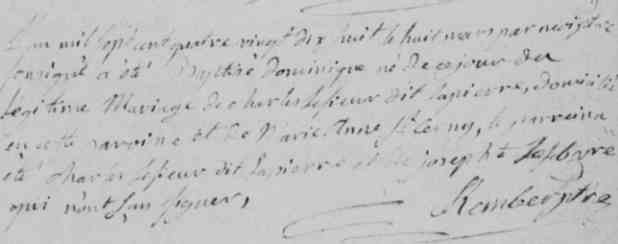 L'an mil sept cent quatre vingt dix huit le huit mars par moi
soussigné a été Baptisé dominique né de ce jour du
legitime Mariage de charles lesieur dit lapierre, domicilié
en cette paroisse et de Marie Anne St Cerny, le parrein a
été charles lesieur dit lapierre et josephte Lefebvre
qui n'ont sçu signer,
Kember ptre